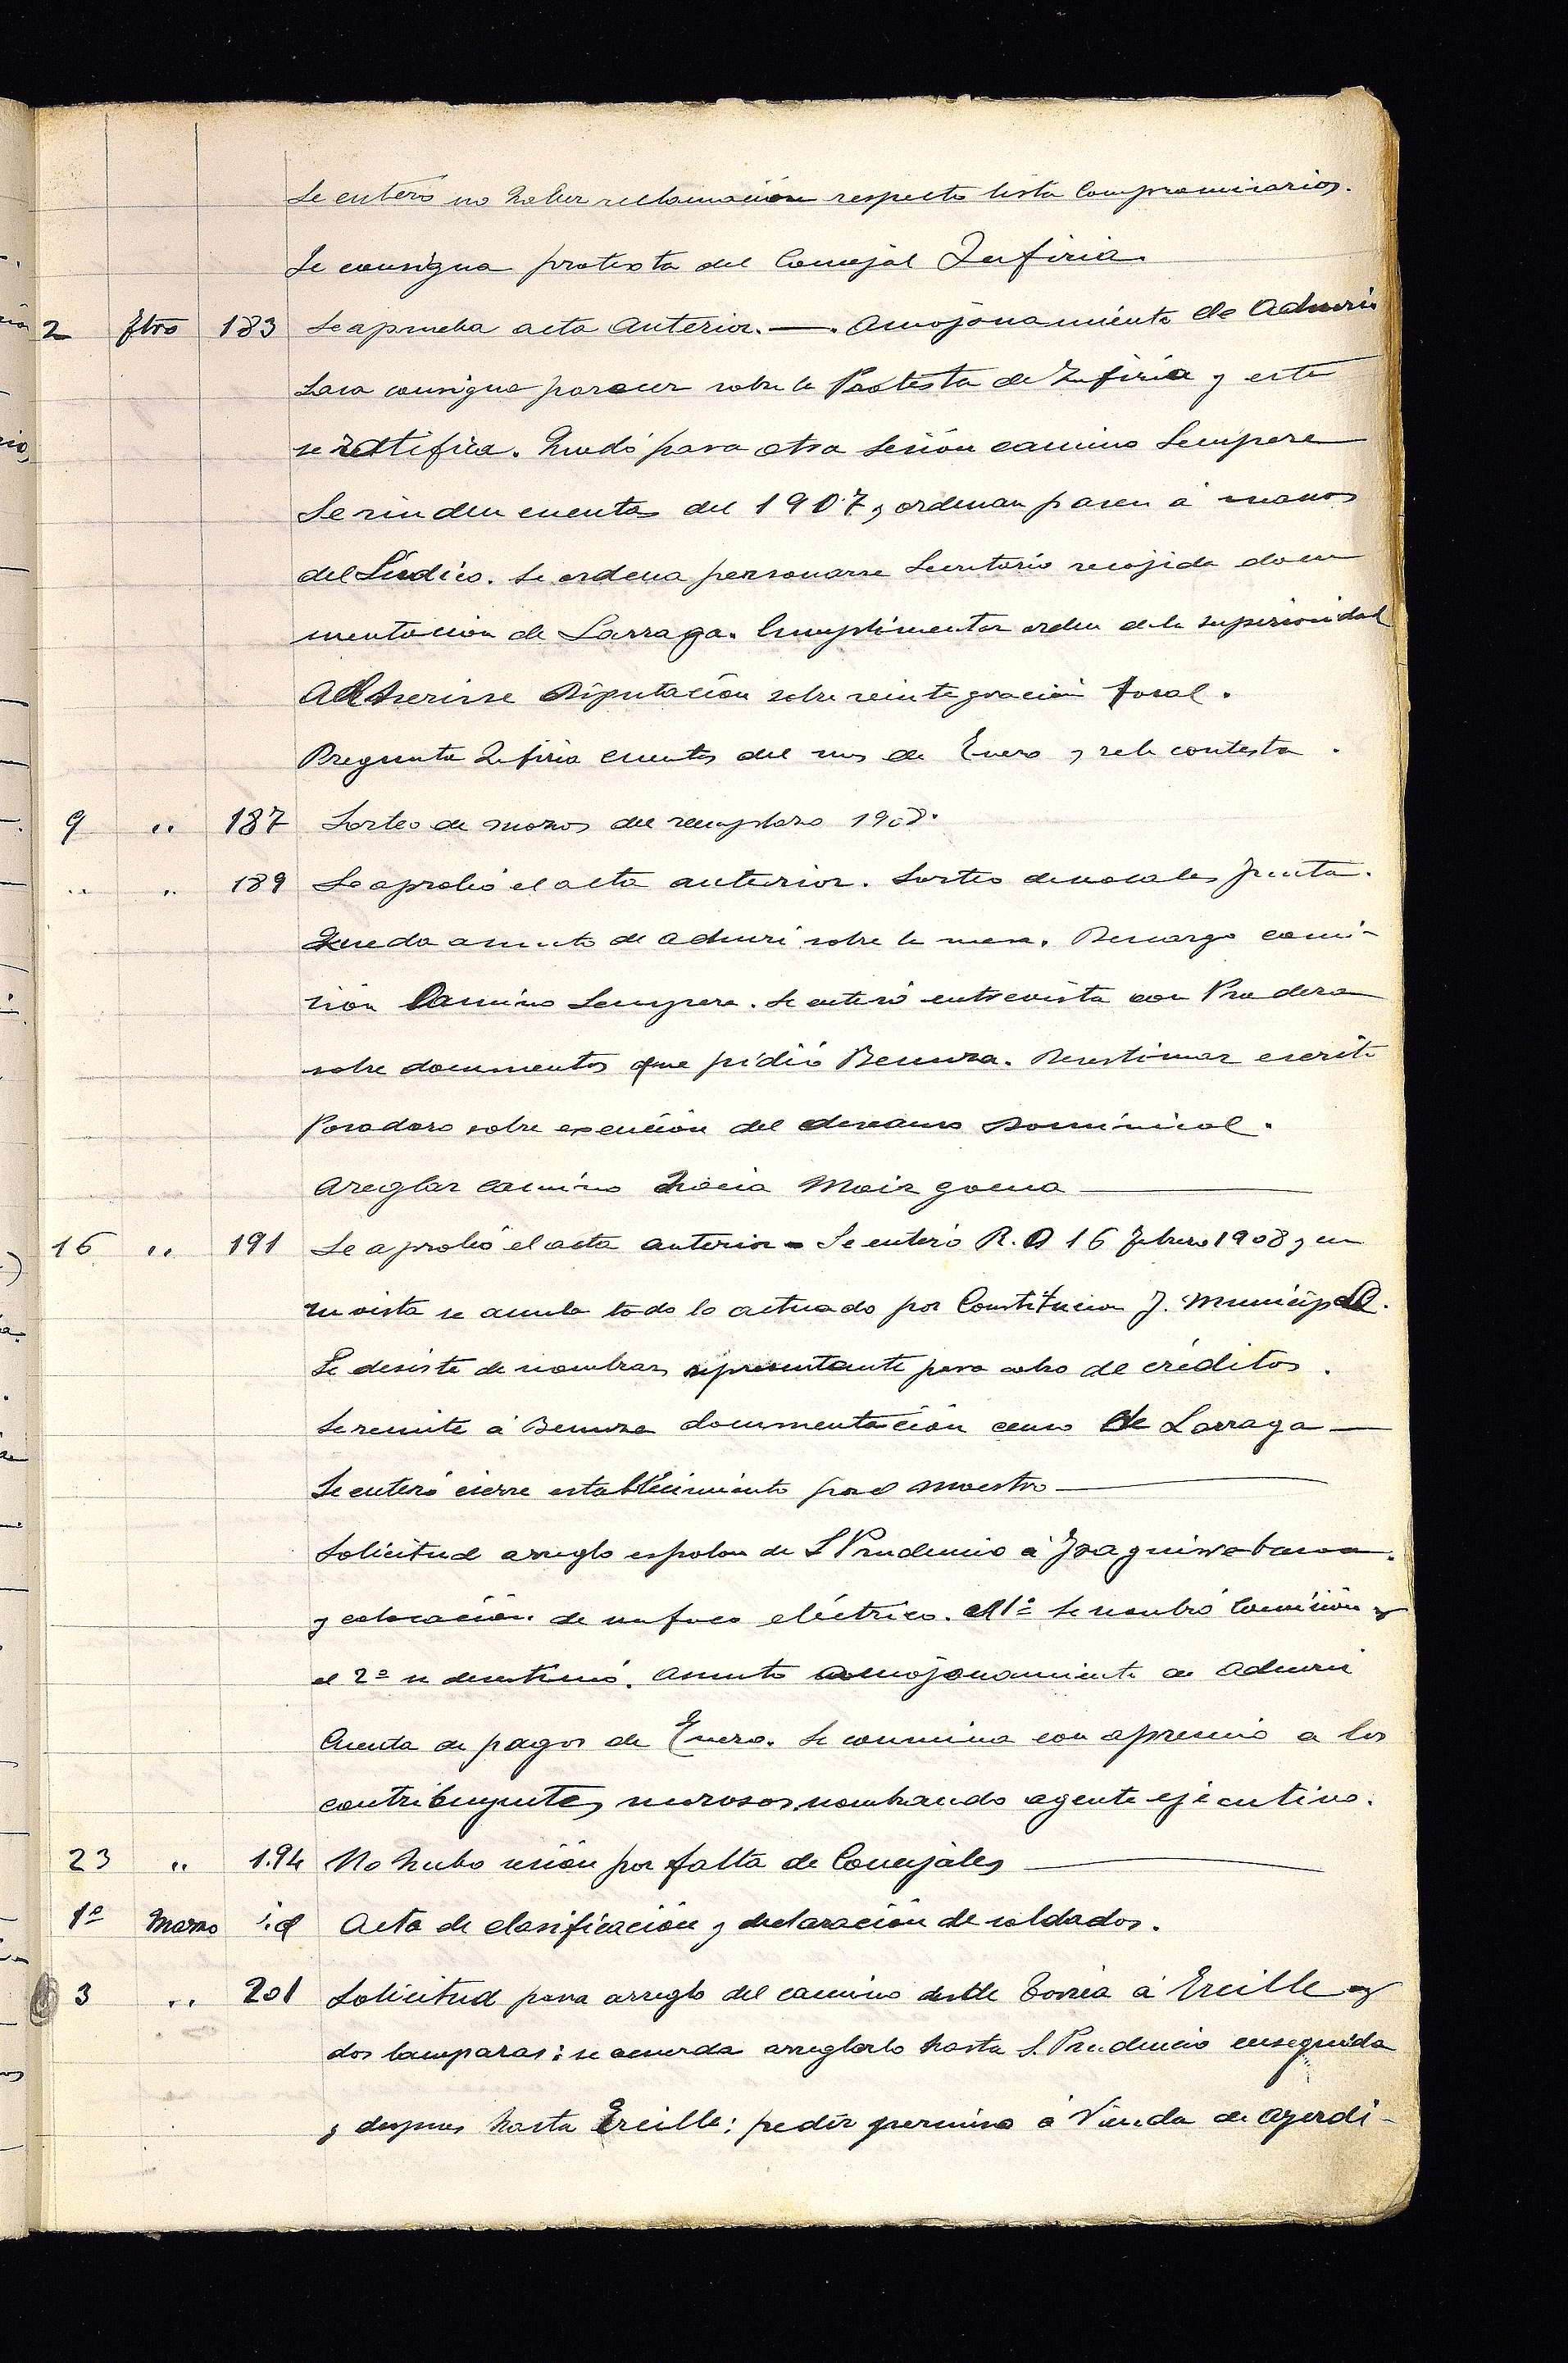 Se enteró no haber reclamación respecto lista Compromisarios.
Se consigna protexta del Concejal Zufiria.
2 Fbro 183 Se aprueba acta anterior. —. Amojonamiento de Aduriz
Lasa consigna parecer sobre la Protesta de Zufiria y este
se ratifica. Quedó para otra sesión camino Sempere
Se rinden cuentas del 1907 y ordenan pasen á manos
del Síndico. Se ordena personarse Secretario recojida docu
mentacion de Larraga. Cumplimentar orden de la superioridad
Adherirse Diputación sobre reintegración foral.
Pregunta Zufiria cuentas del mes de Enero y se le contesta.
9 " 187 Sorteo de mozos del reemplazo 1908.
" " 189 Se aprobó el acta anterior. Sorteo de vocales Junta.
Queda asunto de Aduri sobre la mesa. Descargo comi-
sión Camino Sempere. Se enteró entrevista con Pradera
sobre documentos que pidió Benunza. Desestimar escrito
Posadero sobre exención del descanso Dominical.
Areglar camino hácia Maiz goena —
16 " 191 Se aprobó el acta anterior - Se enteró R. O 16 Febrero 1908 y en
su vista se anula todo lo actuado por Constitucion J. Municipal.
Se desiste de nombrar representante para cobro de créditos.
Se remite á Benunza documentación censo de Larraga —
Se enteró cierre establecimiento por el maestro —
Solicitud arreglo espolon de S Prudencio á
y colocación de un foco eléctrico. Al 1º se nombró Comisión y
al 2º se desestimó. Asunto amojonamiento de Aduriz
Cuenta de pagos de Enero. Se conmina con apremio a los
contribuyentes morosos nombrando agente ejecutivo.
23 " 194 No hubo sesión por falta de Concejales —
1º Marzo id Acta de clasificación y declaración de soldados.
3 " 201 Solicitud para arreglo del camino desde á Ercilla y
dos lamparas: se acuerda arreglarlo hasta S. Prudencio enseguida
y despues hasta Ercilla; pedir permiso á Viuda de Azerdi-